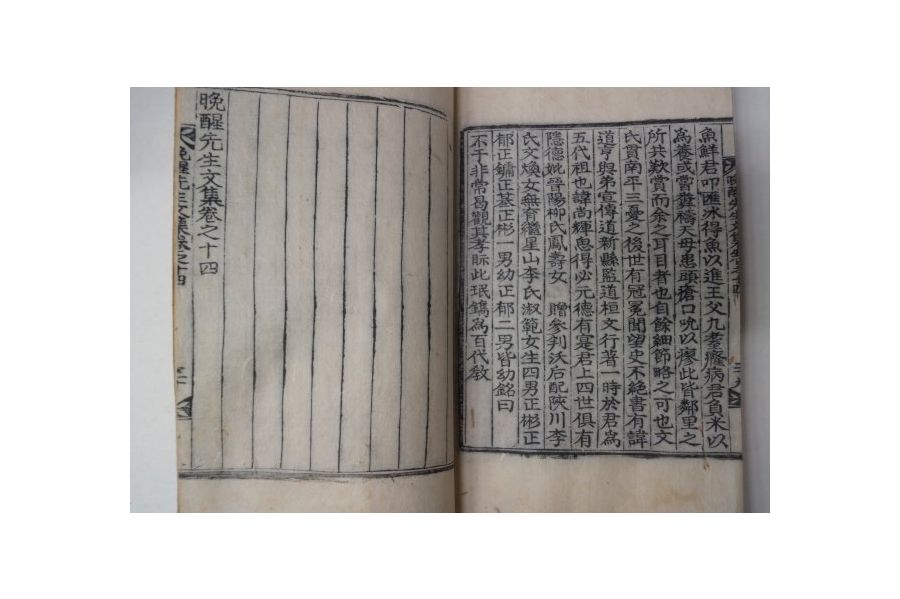 魚鮮君叩匯冰得魚以進王父九耋癃病君負米以
爲養或嘗糞禱天母患頭瘡口吮以瘳此皆鄰里之
所共歎賞而余之耳目者也自餘細節略之可也文
氏貫南平三憂之後世有冠冕聞望史不絶書有諱
道亨與弟宣傳道新縣監道桓文行著一時於君爲
五代祖也諱尚輝思得必元德有寔君上四世俱有
隱德妣晉陽柳氏鳳壽女 贈參判沃后配陜川李
氏文煥女無育繼星山李氏淑範女生四男正彬正
郁正鏞正基正彬一男幼正郁二男皆幼銘曰
不于非常曷觀其孝眎此珉鐫爲百代教
晩醒先生文集卷之十四
晩醒先生文集卷之十四